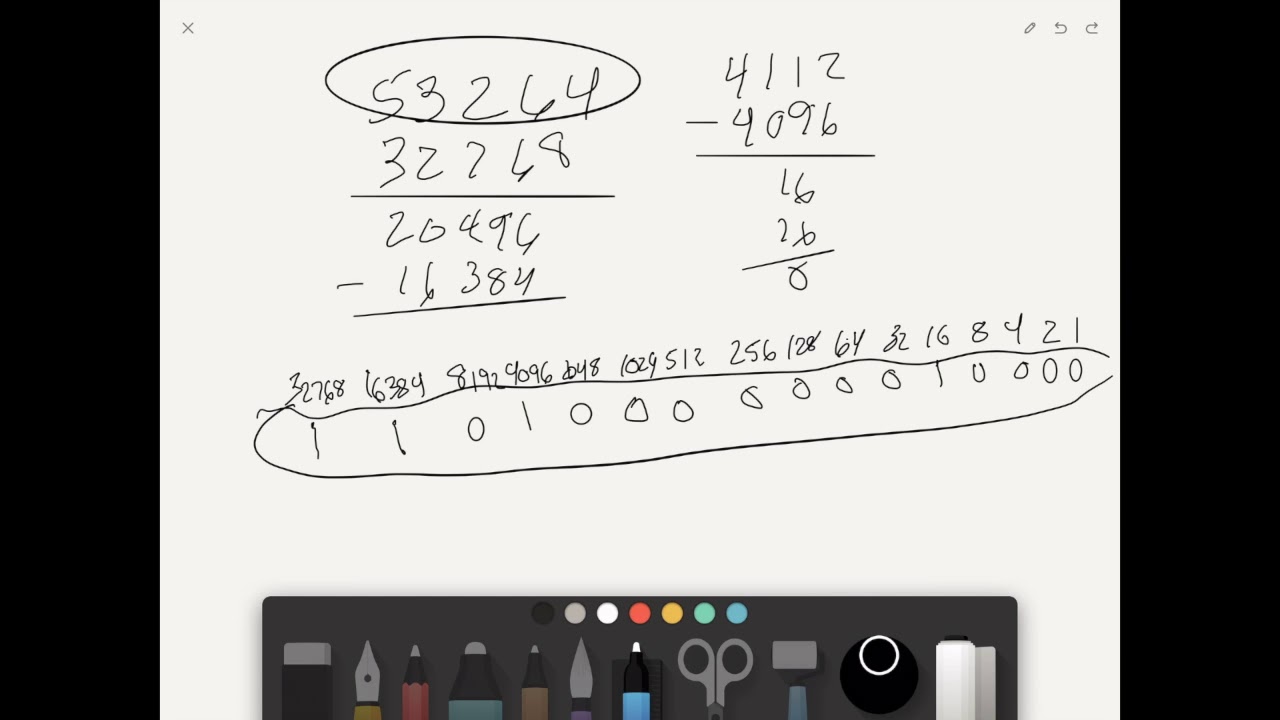 53264
32768
20496
- 16384
4112
- 4096
16
26
0
32768 16384 8192 4096 2048 1024 512 256 128 64 32 16 8 4 2 1
1 1 0 1 0 0 0 0 0 0 0 1 0 0 0 0